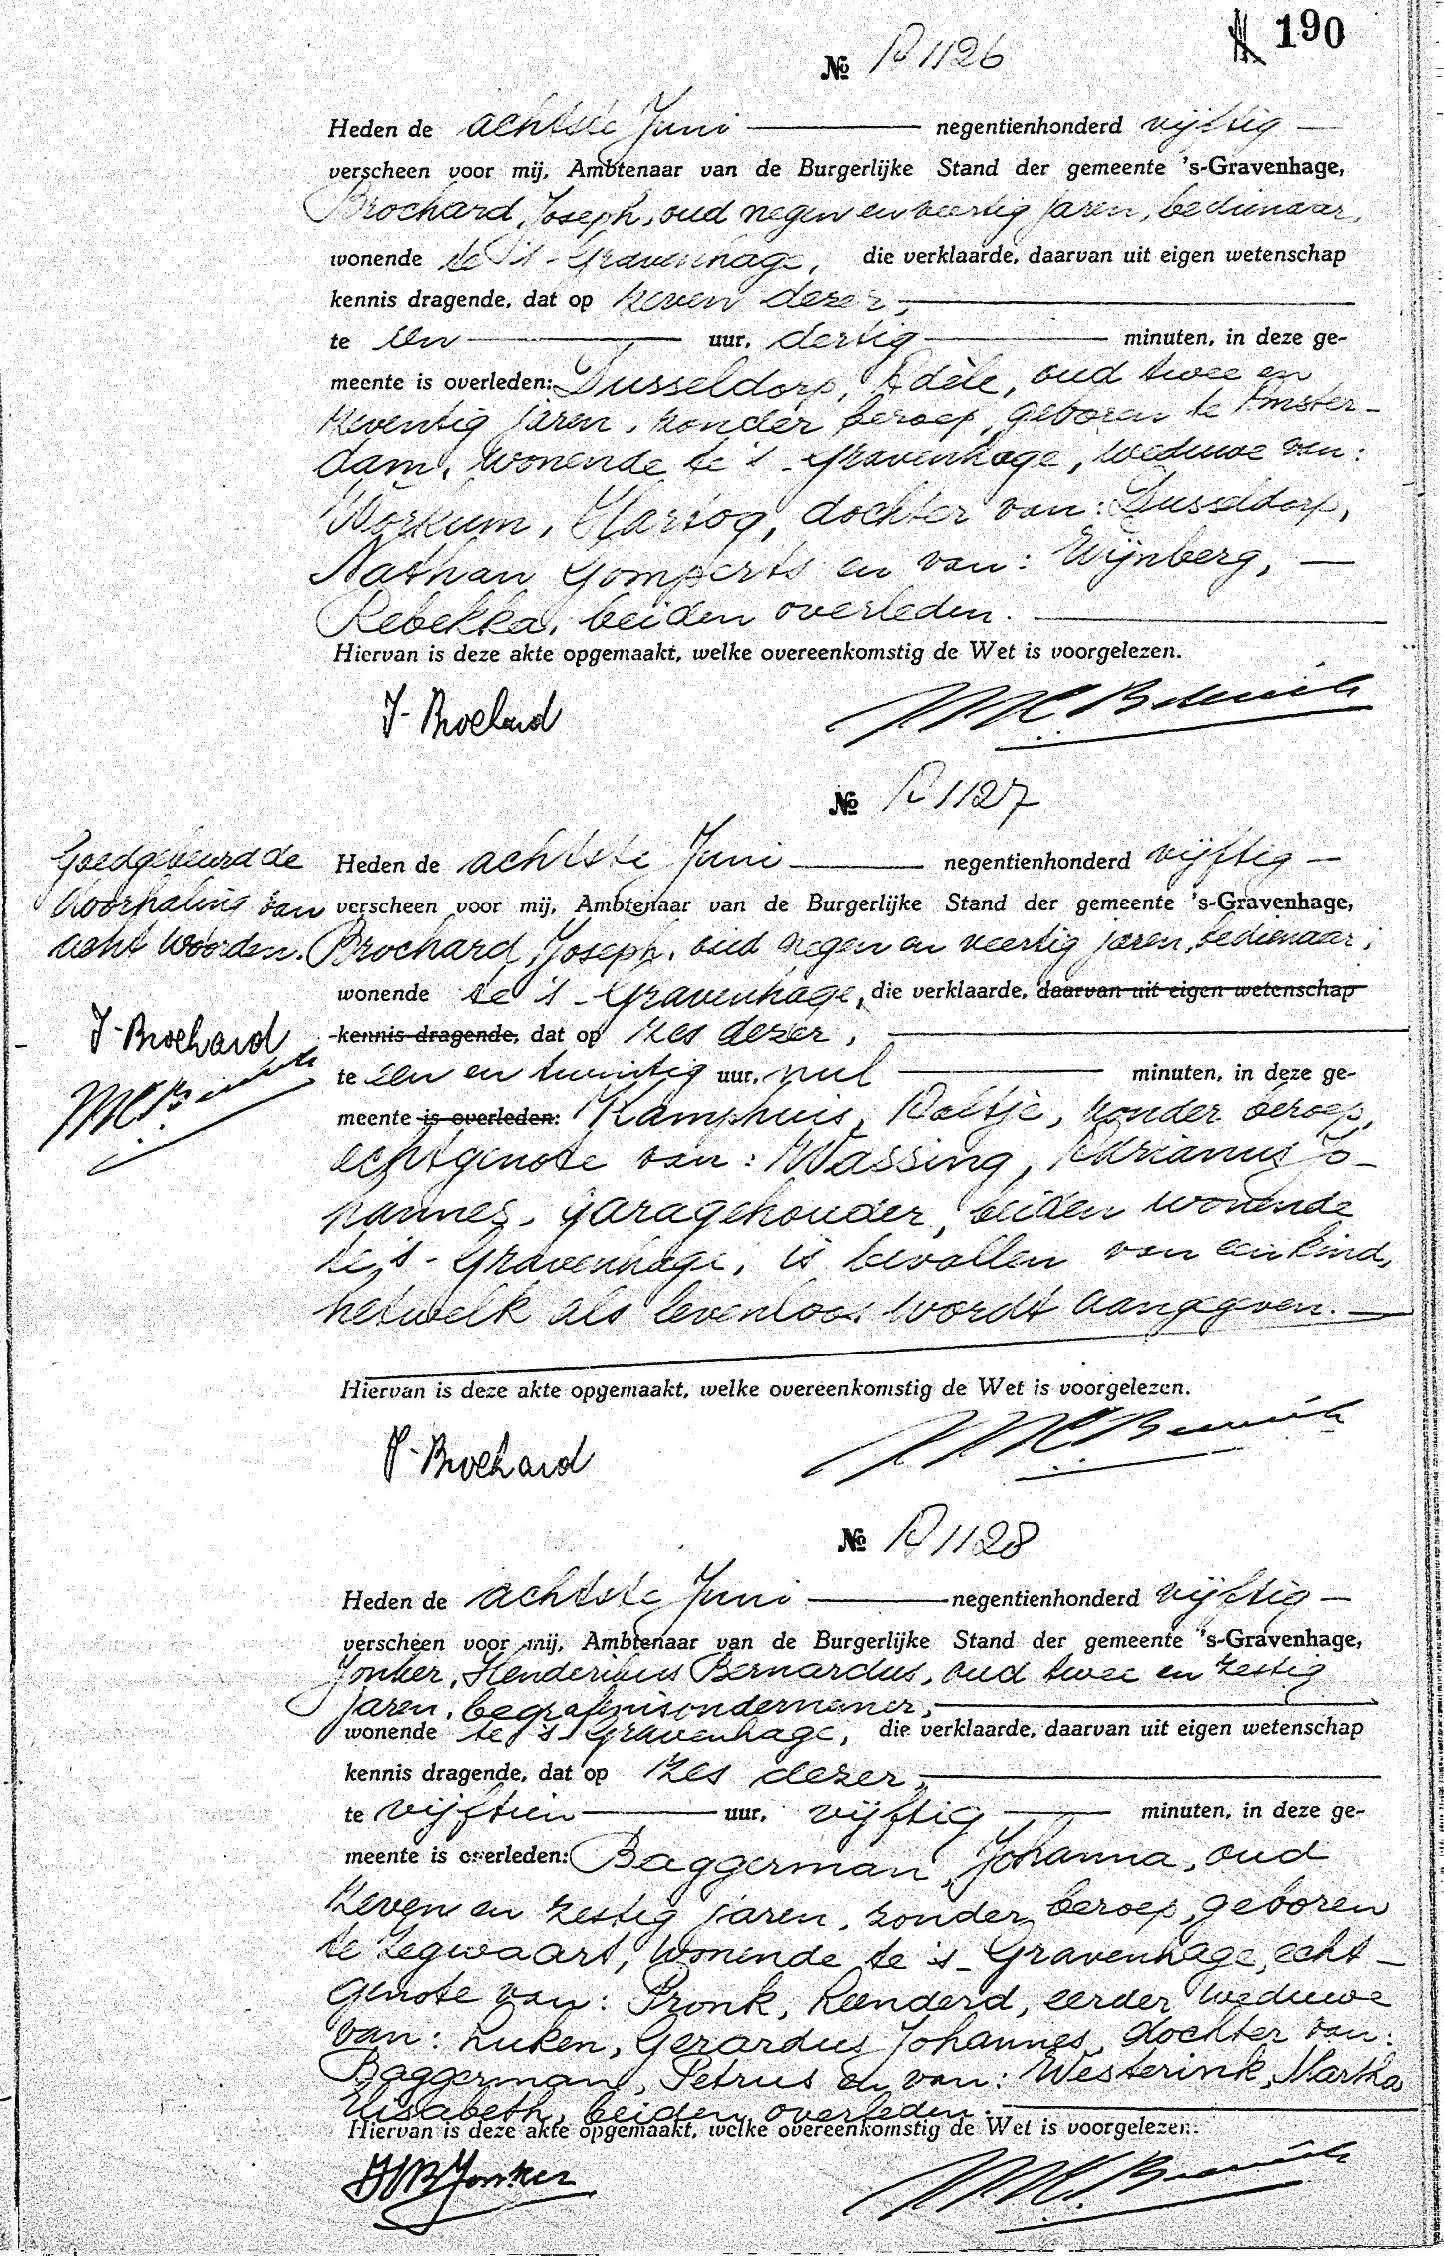 190
№ A 1126
Heden de achtste Juni negentienhonderd vijftig
verscheen voor mij, Ambtenaar van de Burgerlijke Stand der gemeente 's-Gravenhage,
Brochard, Joseph, oud negen en veertig jaren, bedienaar,
wonende te 's-Gravenhage, die verklaarde, daarvan uit eigen wetenschap
kennis dragende, dat op zeven dezer,
te een uur, dertig minuten, in deze ge-
meente is overleden: Dusseldorp, Adèle, oud twee en
zeventig jaren, zonder beroep, geboren te Amster-
dam, wonende te 's-Gravenhage, weduwe van:
Workum, Hartog, dochter van: Dusseldorp,
Nathan Gomperts en van: Wijnberg,
Rebekka, beiden overleden.
Hiervan is deze akte opgemaakt, welke overeenkomstig de Wet is voorgelezen.
J. Brochard
№ A 1127
Goedgekeurd de
doorhaling van
acht woorden.
J. Brochard
Heden de achtste Juni negentienhonderd vijftig
verscheen voor mij, Ambtenaar van de Burgerlijke Stand der gemeente 's-Gravenhage,
Brochard, Joseph, oud negen en veertig jaren, bedienaar,
wonende te 's-Gravenhage, die verklaarde, daarvan uit eigen wetenschap
kennis dragende, dat op zes dezer,
te een en twintig uur, nul minuten, in deze ge-
meente is overleden: Kamphuis, Aaltje, zonder beroep,
echtgenote van: Wassing, Adrianus Jo-
hannes, garagehouder, beiden wonende
te 's-Gravenhage, is bevallen van een kind,
hetwelk als levenloos wordt aangegeven.
Hiervan is deze akte opgemaakt, welke overeenkomstig de Wet is voorgelezen.
J. Brochard
№ A 1128
Heden de achtste Juni negentienhonderd vijftig
verscheen voor mij, Ambtenaar van de Burgerlijke Stand der gemeente 's-Gravenhage,
Jonker, Henderikus Bernardus, oud twee en zestig
jaren, begrafenisondernemer,
wonende te 's-Gravenhage, die verklaarde, daarvan uit eigen wetenschap
kennis dragende, dat op zes dezer,
te vijftien uur, vijftig minuten, in deze ge-
meente is overleden: Baggerman, Johanna, oud
zeven en zestig jaren, zonder beroep, geboren
te Zegwaart, wonende te 's-Gravenhage, echt-
genote van: Pronk, Leenderd, eerder weduwe
van: Luken, Gerardus Johannes, dochter van:
Baggerman, Petrus en van: Westerink, Martha
Elisabeth, beiden overleden.
Hiervan is deze akte opgemaakt, welke overeenkomstig de Wet is voorgelezen.
HB Jonker